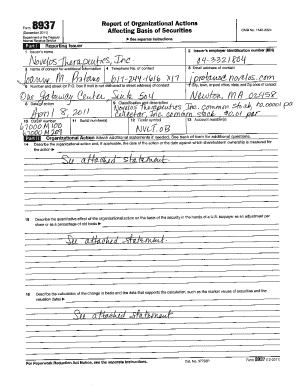 Form 8937
(December 2011)
Department of the Treasury
Internal Revenue Service
Report of Organizational Actions
Affecting Basis of Securities
▶ See separate instructions.
OMB No. 1545-2224
Part I Reporting Issuer
1 Issuer's name
2 Issuer's employer identification number (EIN)
Novelos Therapeutics, Inc.
04-3321804
3 Name of contact for additional information
4 Telephone No. of contact
5 Email address of contact
Joanne M. Protano
617-244-1616 X17
6 Number and street (or P.O. box if mail is not delivered to street address) of contact
7 City, town, or post office, state, and Zip code of contact
One Gateway Center, Suite 504
Newton MA 02458
8 Date of action
9 Classification and description
April 8, 2011
Novelos Therapeutics Inc. common stock
Cellectar, Inc. common stock
10 CUSIP number
11 Serial number(s)
12 Ticker symbol
13 Account number(s)
67000M 100
NVLT.OB
Part II Organizational Action Attach additional statements if needed. See back of form for additional questions.
14 Describe the organizational action and, if applicable, the date of the action or the date against which shareholders' ownership is measured for
the action ▶
See attached statement
15 Describe the quantitative effect of the organizational action on the basis of the security in the hands of a U.S. taxpayer as an adjustment per
share or as a percentage of old basis ▶
See attached statement.
16 Describe the calculation of the change in basis and the data that supports the calculation, such as the market values of securities and the
valuation dates ▶
See attached statement
For Paperwork Reduction Act Notice, see the separate Instructions.
Cat. No. 37752P
Form 8937 (12-2011)